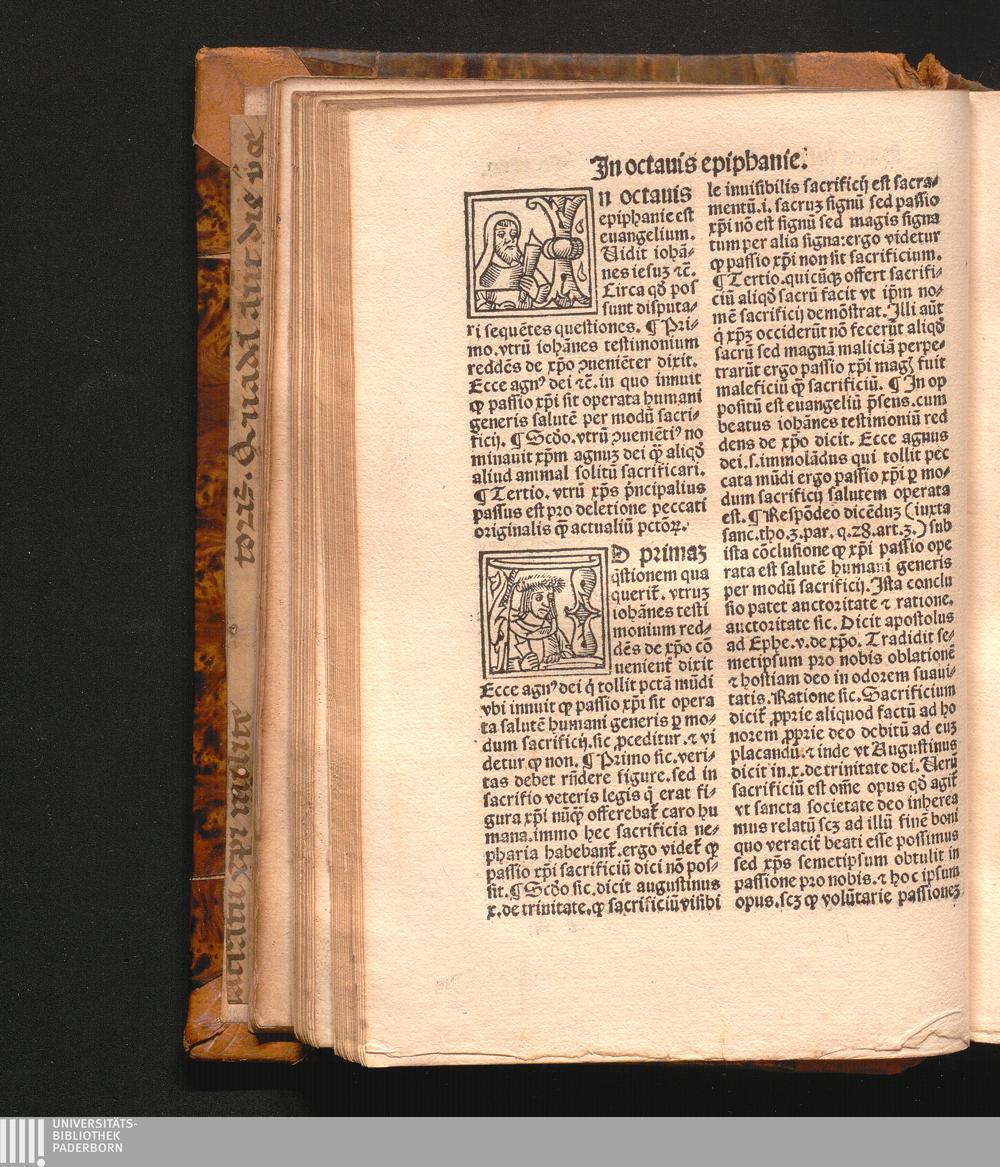 In octauis epiphanie.
n octauis
epiphanie est
euangelium.
Uidit iohā⸗
nes iesuz ⁊c̄.
Circa qd̄ pos
sunt disputa⸗
ri sequētes questiones. ¶ Pri⸗
mo. vtrū iohānes testimonium
reddēs de xp̄o ꝯueniēter dixit.
Ecce agnꝰ dei ⁊c̄. in quo innuit
ꝙ passio xp̄i sit operata humani
generis salutē per modū sacri⸗
ficij. ¶ Scd̄o. vtrū ꝯueniētiꝰ no
minauit xp̄m agnuz dei q̄ aliqd̄
aliud animal solitū sacrificari.
¶ Tertio. vtrū xp̄s p̄ncipalius
passus est pro deletione peccati
originalis q̄ actualiū pctōꝝ.
D primaz
q̄stionem qua
querit᷑. vtruz
iohānes testi
monium red⸗
dēs de xp̄o cō
uenient᷑ dixit
Ecce agnꝰ dei q̇ tollit pctā mūdi
vbi innuit ꝙ passio xp̄i sit opera
ta salutē humani generis ꝑ mo⸗
dum sacrificij. sic ꝓceditur. ⁊ vi
detur ꝙ non. ¶ Primo sic. veri⸗
tas debet rn̄dere figure. sed in
sacrifio veteris legis q̄ erat fi⸗
gura xp̄i nūq̄ offerebat᷑ caro hu
mana. immo hec sacrificia ne⸗
pharia habebant᷑. ergo videt᷑ ꝙ
passio xp̄i sacrificiū dici nō pos⸗
sit. ¶ Scd̄o sic. dicit augustinus
x. de trinitate. ꝙ sacrificiū visibi
le inuisibilis sacrificij est sacra⸗
mentū. i. sacruz signū sed passio
xp̄i nō est signū sed magis signa
tum per alia signa: ergo videtur
ꝙ passio xp̄i non sit sacrificium.
¶ Tertio. quicūqꝫ offert sacrifi⸗
ciū aliqd̄ sacrū facit vt ip̄m no⸗
mē sacrificij demōstrat. Illi aūt
q̇ xp̄z occiderūt nō fecerūt aliqd̄
sacrū sed magnā maliciā perpe⸗
trarūt ergo passio xp̄i magꝭ fuit
maleficiū q̄ sacrificiū. ¶ In op
positū est euangeliū p̄sens. cum
beatus iohānes testimoniū red
dens de xp̄o dicit. Ecce agnus
dei. s. immolādus qui tollit pec
cata mūdi ergo passio xp̄i ꝑ mo⸗
dum sacrificij salutem operata
est. ¶ Respōdeo dicēduz (iuxta
sanc. tho. 3. par. q. 28. art. 3.) sub
ista cōclusione ꝙ xp̄i passio ope
rata est salutē humani generis
per modū sacrificij. Ista conclu
sio patet auctoritate ⁊ ratione.
auctoritate sic. Dicit apostolus
ad Ephe. v. de xp̄o. Tradidit se⸗
metipsum pro nobis oblationē
⁊ hostiam deo in odorem suaui⸗
tatis. Ratione sic. Sacrificium
dicit᷑ ꝓprie aliquod factū ad ho
norem ꝓprie deo debitū ad euz
placandū. ⁊ inde vt Augustinus
dicit in. x. de trinitate dei. Uerū
sacrificiū est om̄e opus qd̄ agit᷑
vt sancta societate deo inherea
mus relatū scꝫ ad illū finē boni
quo veracit᷑ beati esse possimus
sed xp̄s semetipsum obtulit in
passione pro nobis. ⁊ hoc ipsum
opus. scꝫ ꝙ volūtarie passionez
UNIVERSITÄTS-
BIBLIOTHEK
PADERBORN